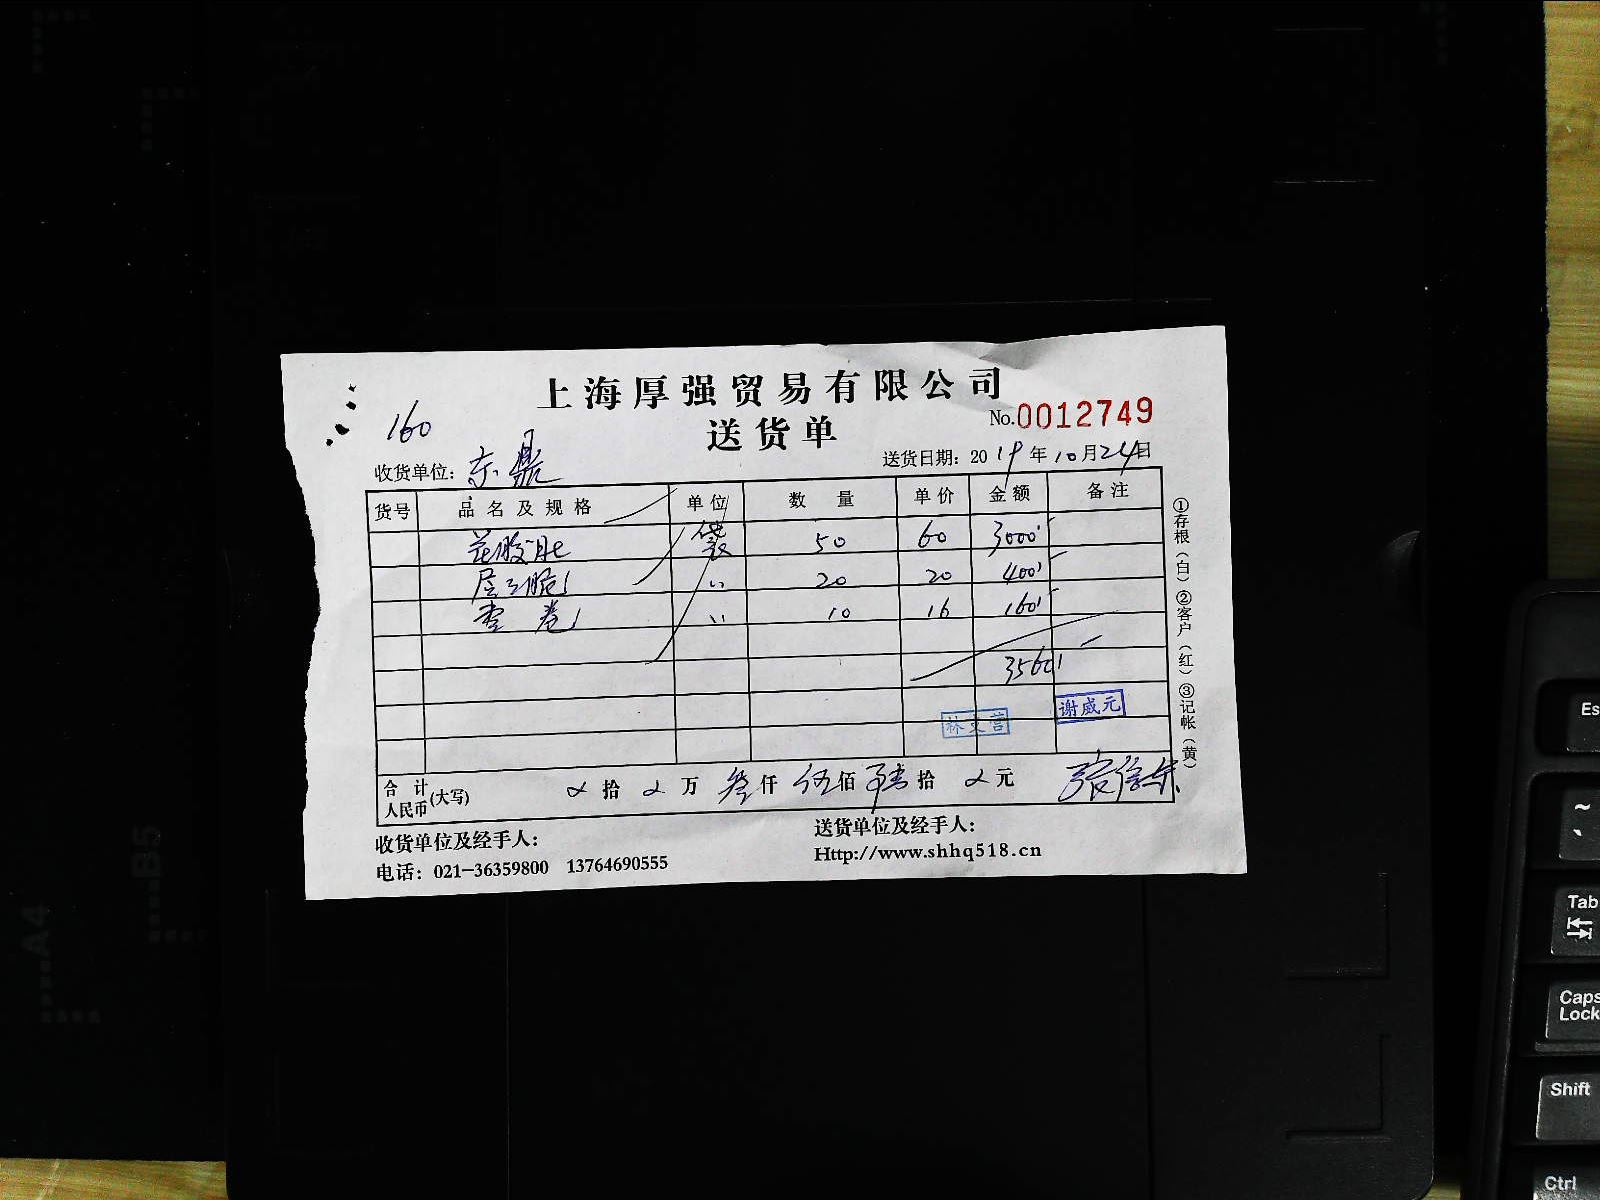 上海厚强贸易有限公司
No.0012749
160
送货单
收货单位：东鼎
送货日期：2019年10月24日
货号 品名及规格 单位 数量 单价 金额 备注
花胶肚 袋 50 60 3000
层层脆 〃 20 20 400
卷 〃 10 16 160
3560
谢威元
林 营
合计人民币(大写) 拾 万 叁仟 伍佰 陆拾 元
收货单位及经手人：
送货单位及经手人：
电话：021-36359800 13764690555
Http://www.shhq518.cn
①存根（白）②客户（红）③记帐（黄）
B5
A4
Es
~
Tab
Caps Lock
Shift
Ctrl